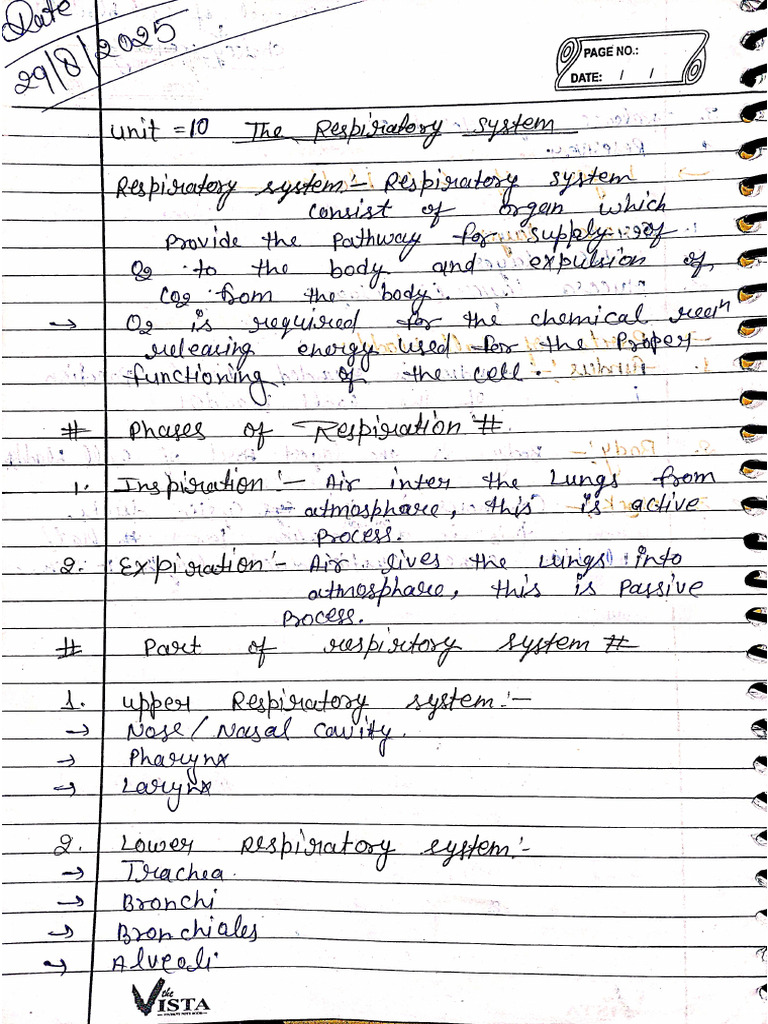 Date
29/8/2025
PAGE NO.:
DATE: / /
Unit = 10 The Respiratory system
Respiratory system:- Respiratory system
consist of organ which
provide the pathway for supply of
O2 to the body and expulsion of
CO2 from the body.
→ O2 is required for the chemical reacn
releasing energy used for the proper
functioning of the cell.
# Phases of Respiration #
1. Inspiration:- Air inter the Lungs from
atmosphare, this is active
process.
2. Expiration:- Air lives the Lungs into
atmosphare, this is Passive
process.
# Part of respirtory system #
1. upper Respiratory system:-
→ Nose/Nasal Cavity.
→ Pharynx
→ Larynx
2. Lower Respiratory system:-
→ Trachea.
→ Bronchi
→ Bronchioles
→ Alveoli
the VISTA